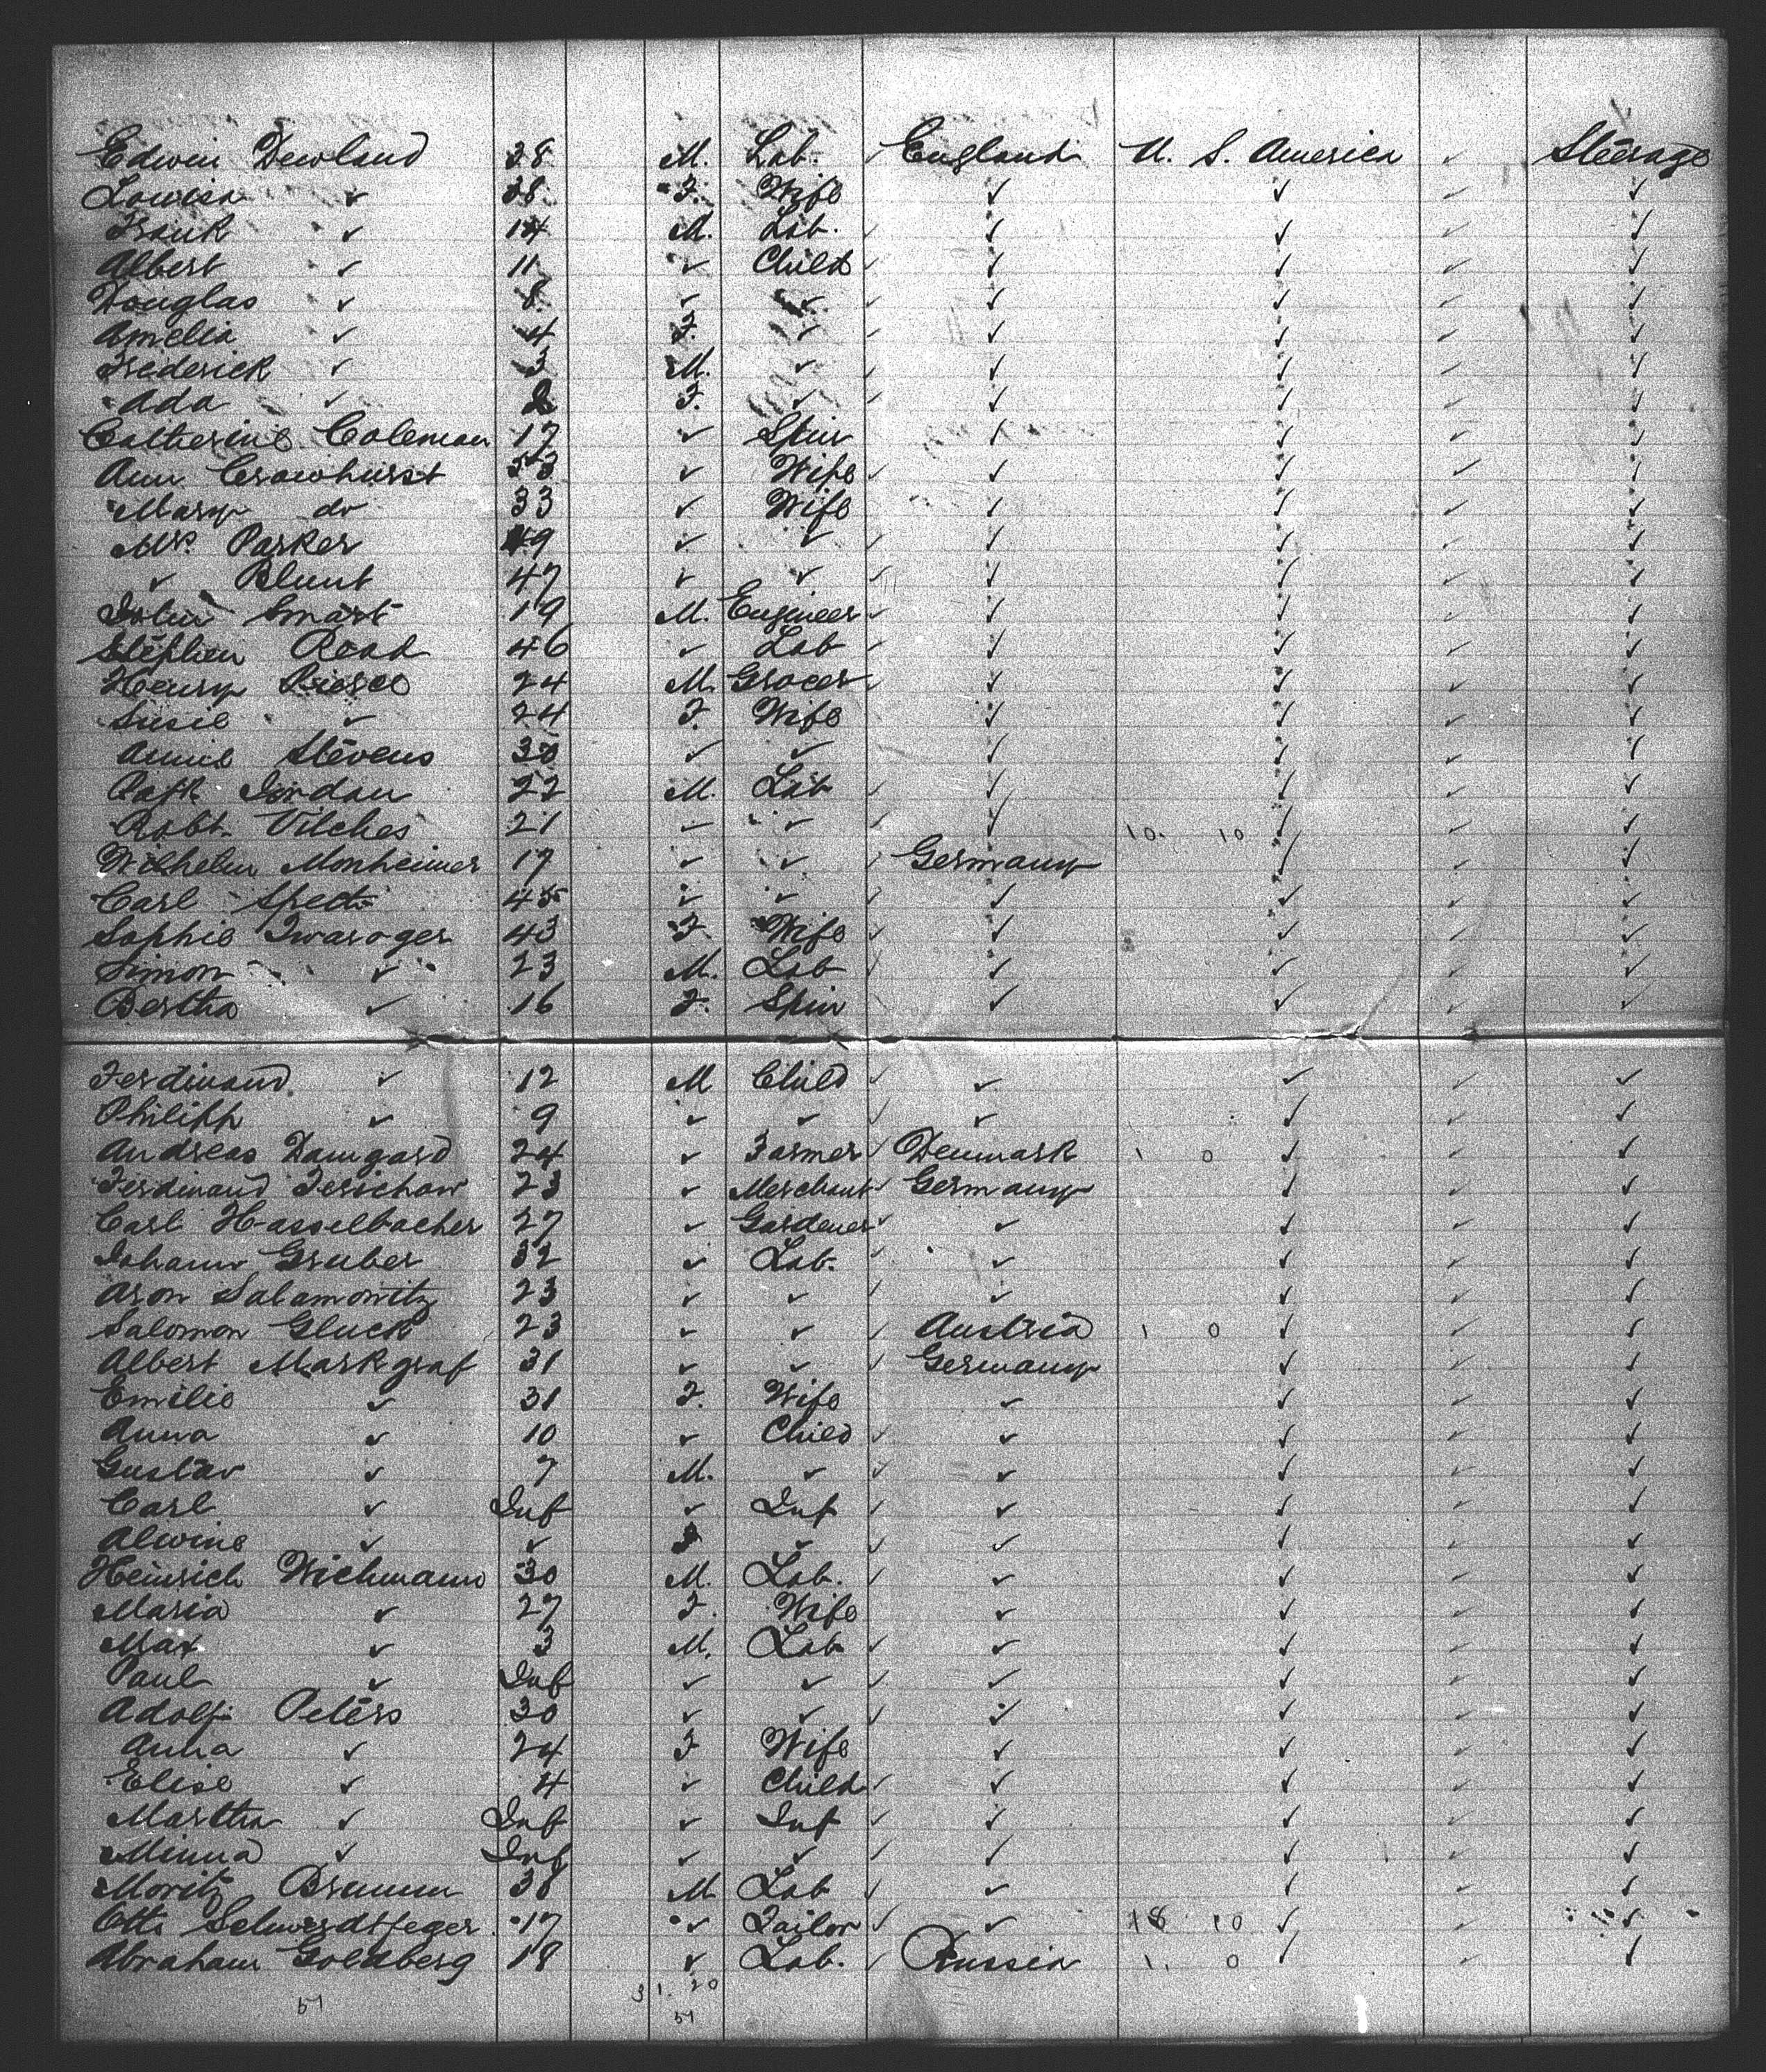 Edwin Dewland 38 M. Lab. ✓ England U. S. America ✓ Steerage
Louisa ✓ 38 F. Wife ✓ ✓ ✓ ✓
Frank ✓ 14 M. Lab. ✓ ✓ ✓ ✓ ✓
Albert ✓ 11 ✓ Child ✓ ✓ ✓ ✓ ✓
Douglas ✓ 8 ✓ ✓ ✓ ✓ ✓ ✓ ✓
Amelia ✓ 4 F. ✓ ✓ ✓ ✓ ✓ ✓
Frederick ✓ 3 M. ✓ ✓ ✓ ✓ ✓ ✓
Ada ✓ 2 F. ✓ ✓ ✓ ✓ ✓ ✓
Catherine Coleman 17 ✓ Spin ✓ ✓ ✓ ✓
Ann Crowhurst ✓ Wife ✓ ✓ ✓ ✓ ✓
Mary do 33 ✓ Wife ✓ ✓ ✓ ✓
Mrs. Parker 49 ✓ ✓ ✓ ✓ ✓ ✓ ✓
✓ Blunt 47 ✓ ✓ ✓ ✓ ✓ ✓ ✓
John Smart 19 M. Engineer ✓ ✓ ✓ ✓ ✓
Stephen Road 46 ✓ Lab ✓ ✓ ✓ ✓ ✓
Henry Pierce 24 M. Grocer ✓ ✓ ✓ ✓ ✓
Susie ✓ 24 F. Wife ✓ ✓ ✓ ✓
Annie Stevens 30 ✓ ✓ ✓ ✓ ✓ ✓
Jordan 22 M. Lab ✓ ✓ ✓ ✓ ✓
Robt. Vilches 21 ✓ ✓ ✓ ✓ 10. 10 ✓ ✓ ✓
Wilhelm Monheimer 17 ✓ ✓ ✓ Germany ✓ ✓ ✓
Carl Specht 45 ✓ ✓ ✓ ✓ ✓ ✓
Sophie Twaroger 43 F. Wife ✓ ✓ ✓ ✓ ✓
Simon ✓ 23 M. Lab ✓ ✓ ✓ ✓ ✓
Bertha ✓ 16 F. Spin ✓ ✓ ✓ ✓
Ferdinand ✓ 12 M Child ✓ ✓ ✓ ✓ ✓
Philipp ✓ 9 ✓ ✓ ✓ ✓ ✓ ✓ ✓
Andreas Damgard 24 ✓ Farmer ✓ Denmark 1 0 ✓ ✓ ✓
Ferdinand Jerichow 23 ✓ Merchant ✓ Germany ✓ ✓ ✓
Carl Hasselbacher 27 ✓ Gardener ✓ ✓ ✓ ✓ ✓
Johann Gruber 32 ✓ Lab. ✓ ✓ ✓ ✓ ✓
Aron Salamowitz 23 ✓ ✓ ✓ ✓ ✓ ✓ ✓
Salomon Gluck 23 ✓ ✓ ✓ Austria 1 0 ✓ ✓ ✓
Albert Markgraf 31 ✓ ✓ ✓ Germany ✓ ✓ ✓
Emilie ✓ 31 F. Wife ✓ ✓ ✓ ✓
Anna ✓ 10 ✓ Child ✓ ✓ ✓ ✓ ✓
Gustav ✓ 7 M. ✓ ✓ ✓ ✓ ✓ ✓
Carl ✓ Inf ✓ Inf ✓ ✓ ✓ ✓ ✓
Alwine ✓ ✓ F ✓ ✓ ✓ ✓ ✓ ✓
Heinrich Wichmann 30 M. Lab. ✓ ✓ ✓ ✓ ✓
Maria ✓ 27 F. Wife ✓ ✓ ✓ ✓
Max ✓ 3 M. Lab ✓ ✓ ✓ ✓ ✓
Paul ✓ Inf ✓ ✓ ✓ ✓ ✓ ✓ ✓
Adolf Peters 30 ✓ ✓ ✓ ✓ ✓ ✓ ✓
Anna ✓ 24 F Wife ✓ ✓ ✓ ✓
Elise ✓ 4 ✓ Child ✓ ✓ ✓ ✓ ✓
Martha ✓ Inf ✓ Inf ✓ ✓ ✓ ✓ ✓
Minna ✓ Inf ✓ ✓ ✓ ✓ ✓ ✓ ✓
Moritz Brumm 38 M Lab ✓ ✓ ✓ ✓ ✓
Otto Schwerdtfeger 17 ✓ Tailor ✓ ✓ 18 10 ✓ ✓ ✓
Abraham Goldberg 18 ✓ Lab. ✓ Russia 1. 0 ✓ ✓ ✓
51 31. 20
51